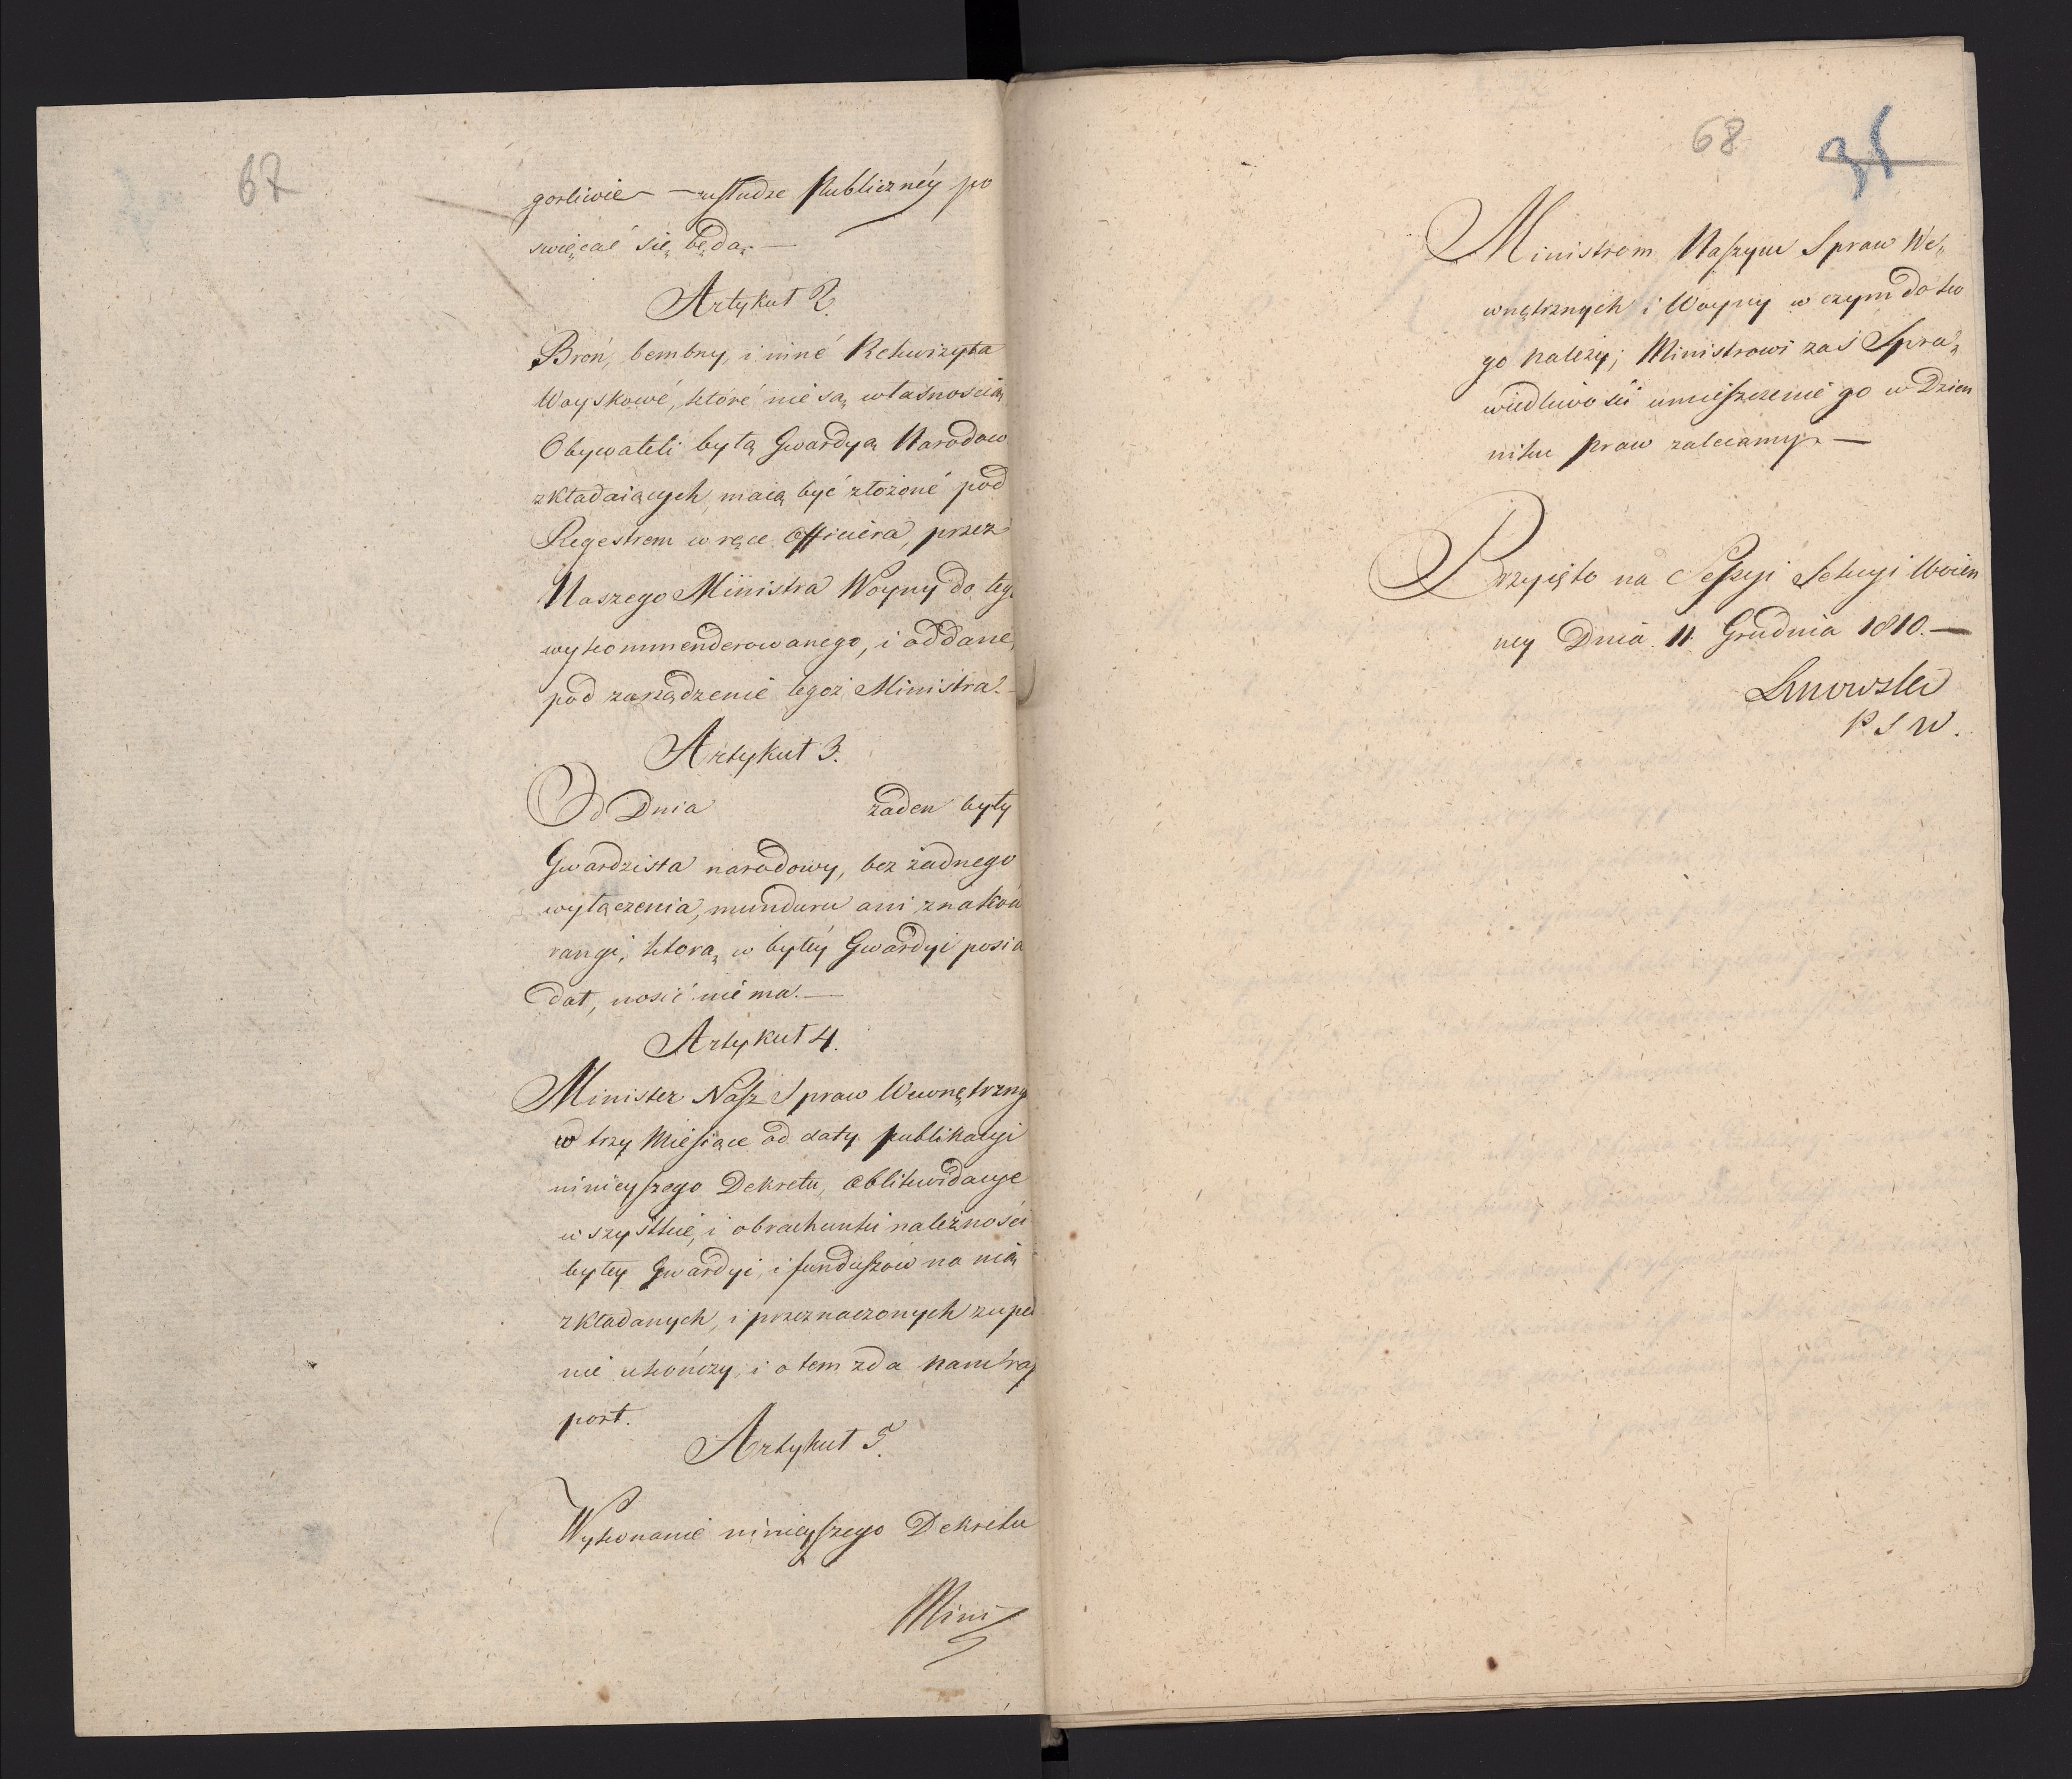 67
gorliwie — usłudze Publicznéy po
swięcać się będą. —
Artykuł 2.
Broń, bembny, i inné Rekwizyta
Woyskowé, któré nie są własnoscią
Obywateli byłą Gwardyą Narodow.
składaiących, maią być złożoné pod
Regestrem w ręce Officiera, przez
Naszego Ministra Woyny do tego
wykommenderowanego, i oddané,
pod zarządzenié tegoż Ministra. —
Artykuł 3.
Od Dnia żaden były
Gwardzista narodowy, bez żadnego
wyłączenia, munduru ani znaków
rangi, którą w byłéy Gwardyi posia
dał, nosić nié ma. —
Artykuł 4.
Minister Nasz Spraw Wewnętrzny
w trzy Miesiące od daty publikacyi
ninieyszego Dekretu, oblikwidacye
wszystkié, i obrachunki należności
byłey Gwardyi, i funduszów na nią
składanych, i przeznaczonych zupeł
nié ukończy, i o tem zda Nam rap
port.
Artykuł 5.
Wykonanié ninieyszego Dekretu
Mini
68
35
Ministrom Naszym Spraw We„
wnętrznych i Woyny w czym do ko
go należy; Ministrowi zaś Spra„
wiedliwości umieszczenié go w Dzien
niku Praw zalecamy. —
Przyięto na Sessyi Sekcyi Woien
ney Dnia 11 Grudnia 1810. —
Linowski
P S W.